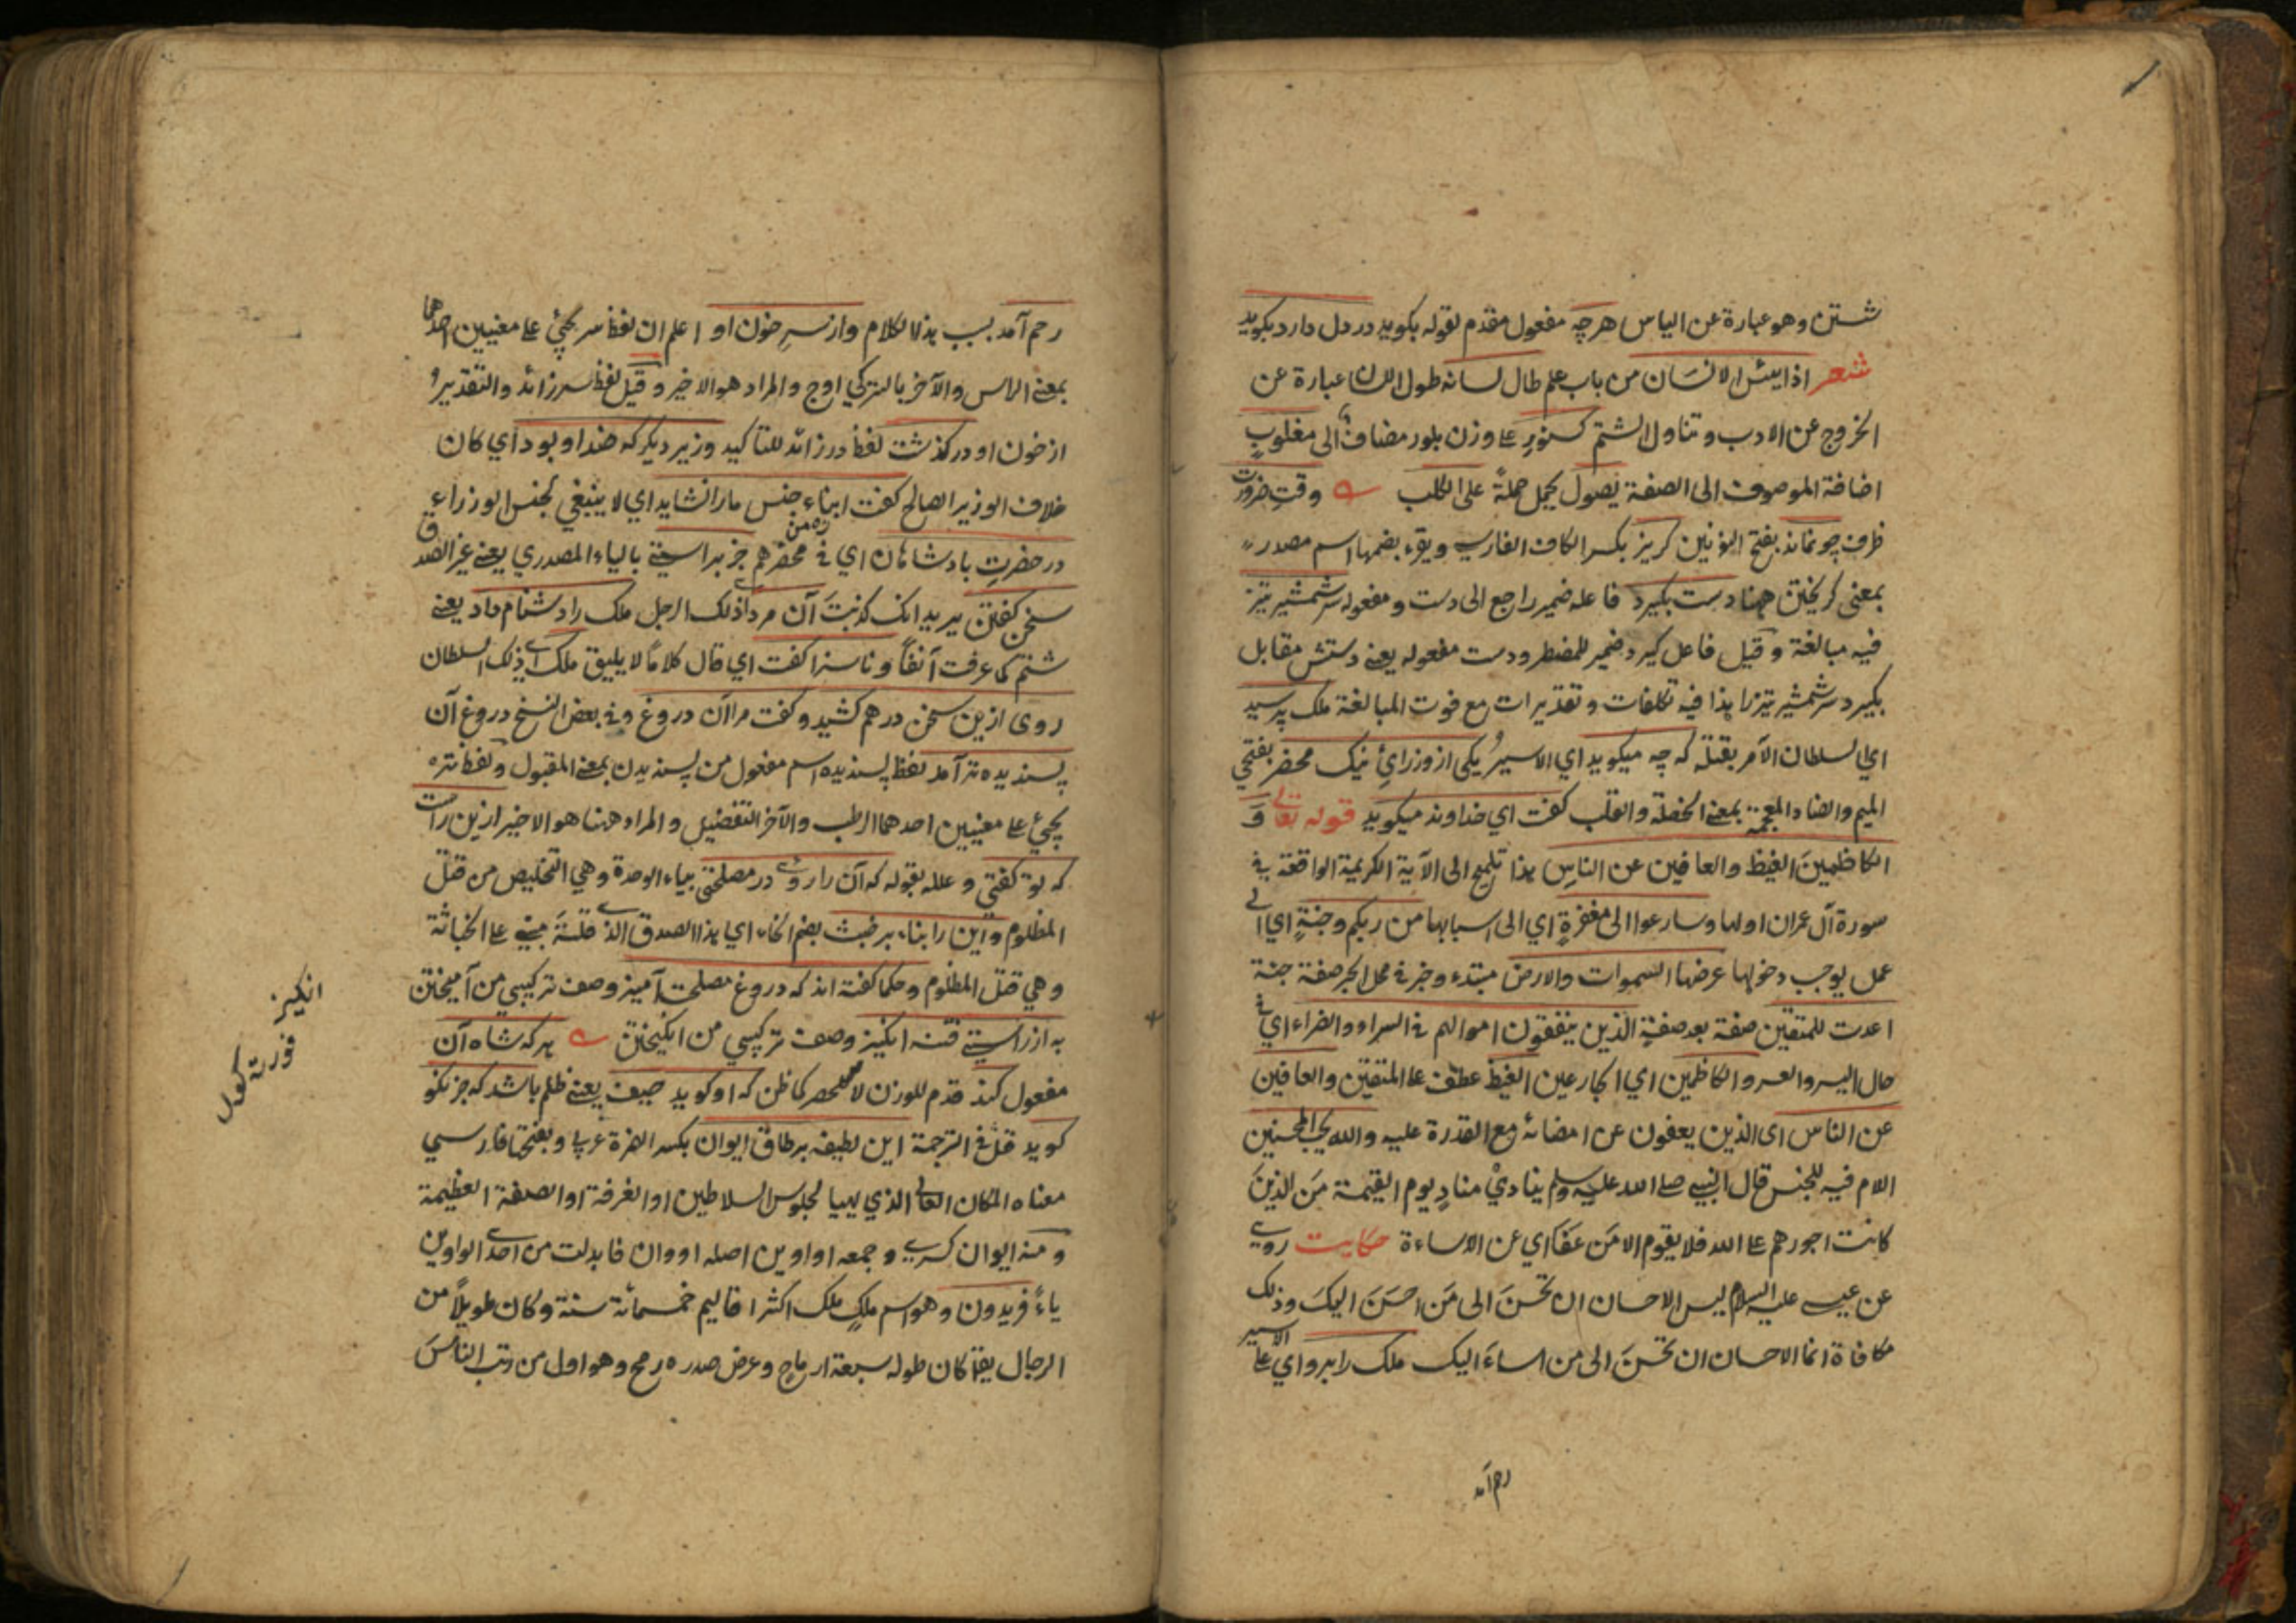 شستن وهو عبارة عن الياس هرچه مفعول مقدم لقوله بكويد در دل دارد بكويد
شعر اذا يئس الانسان من باب علم طال لسانه طول اللسان عبارة عن
الخروج عن الادب وتناول الشتم كسنور على وزن بلور مضاف الى مغلوب
اضافة الموصوف الى الصفة يصول يحمل حملةً على الكلب وقت ضرورت
ظرف چو نماند بفتح النونين كريز بكسر الكاف الفارسي ويقرء بضمها اسم مصدر
بمعنى كريختن ههنا دست بكيرد فاعله ضمير راجع الى دست ومفعوله سر شمشير تيز
فيه مبالغة وقيل فاعل كيرد ضمير للمضطر ودست مفعوله يعنى دستش مقابل
بكيرد سر شمشير تيز را هذا فيه تكلفات وتقديرات مع فوت المبالغة ملك پرسيد
اي السلطان الآمر بقتله كه چه ميكويد اي الاسير يكى از وزرائ نيك محضر بفتحي
الميم والضاد المعجمة بمعنى الخصلة والقلب كفت اي خداوند ميكويد قوله تعالى و
الكاظمين الغيظ والعافين عن الناس هذا تلميح الى الآية الكريمة الواقعة في
سورة آل عمران اولها وسارعوا الى مغفرةٍ اي الى اسبابها من ربكم وجنةٍ اي الى
عمل يوجب دخولها عرضها السموات والارض مبتدء وخبر في محل الجر صفة جنة
اعدت للمتقين صفة بعد صفةٍ الذين ينفقون اموالهم في السراء والضراء اي في
حال اليسر والعسر والكاظمين اي الجارعين الغيظ عطف على المتقين والعافين
عن الناس اى الذين يعفون عن امضائه مع القدرة عليه والله يحب المحسنين
اللام فيه للجنس قال النبي صلى الله عليه وسلم ينادي منادٍ يوم القيمة من الذين
كانت اجورهم على الله فلا يقوم الا من عفا اي عن الاساءة حكايت روي
عن عيسى عليه السلام ليس الاحسان ان تحسن الى من احسن اليك وذلك
مكافاة انما الاحسان ان تحسن الى من اساء اليك ملك را برو اي على الاسير
رحم آمد
رحم آمد بسبب هذا الكلام واز سر خون او اعلم ان لفظ سر يجئ على معنيين احدهما
بمعنى الراس والآخر بالتركي اوج والمراد هو الاخير وقيل لفظ سر زائد والتقدير و
از خون او در كذشت لفظ در زائد للتاكيد وزير ديكر كه ضد او بود اي كان
خلاف الوزير الصالح كفت ابناء جنس ما را نشايد اي لا ينبغي لجنس الوزراء
در حضرت پادشاهان اي في محضرهم جز براستي بالياء المصدري يعنى غير الصدق
سخن كفتن يريد انك كذبت آن مرد اي ذلك الرجل ملك را دشنام داد يعنى
شتم كما عرفت آنفاً وناسزا كفت اي قال كلاماً لا يليق ملك اي ذلك السلطان
روى ازين سخن درهم كشيد وكفت مرا آن دروغ وفي بعض النسخ دروغ آن
پسنديده تر آمد لفظ پسنديده اسم مفعول من پسنديدن بمعنى المقبول ولفظ تر
يجئ على معنيين احدهما الرطب والآخر التفضيل والمراد ههنا هو الاخير ازين راست
كه تو كفتي وعلله بقوله كه آن را روى در مصلحتي بياء الوحدة وهي التخليص من قتل
المظلوم واين را بناء بر خبث بضم الخاء اي هذا الصدق الذي قلته مبني على الخباثة
وهي قتل المظلوم وحكما كفته اند كه دروغ مصلحت آميز وصف تركيبي من آميختن
به از راستي فتنه انكيز وصف تركيبي من انكيختن هر كه شاه آن
مفعول كند قدم للوزن لا للحصر كما ظن كه او كويد حيف يعنى ظلم باشد كه جز نكو
كويد قل في الترجمة اين لطيفه بر طاق ايوان بكسر الهمزة عربي وبفتحها فارسي
معناه المكان العالي الذي يهيا لجلوس السلاطين او الغرفة او الصفة العظيمة
ومنه ايوان كسرى وجمعه اواوين اصله اووان فابدلت من احدى الواوين
ياءً فريدون وهو اسم ملكٍ ملك اكثر اقاليم خمسمائة سنة وكان طويلاً من
الرجال يقال كان طوله سبعة ارماح وعرض صدره رمح وهو اول من رتب الناس
انكيز